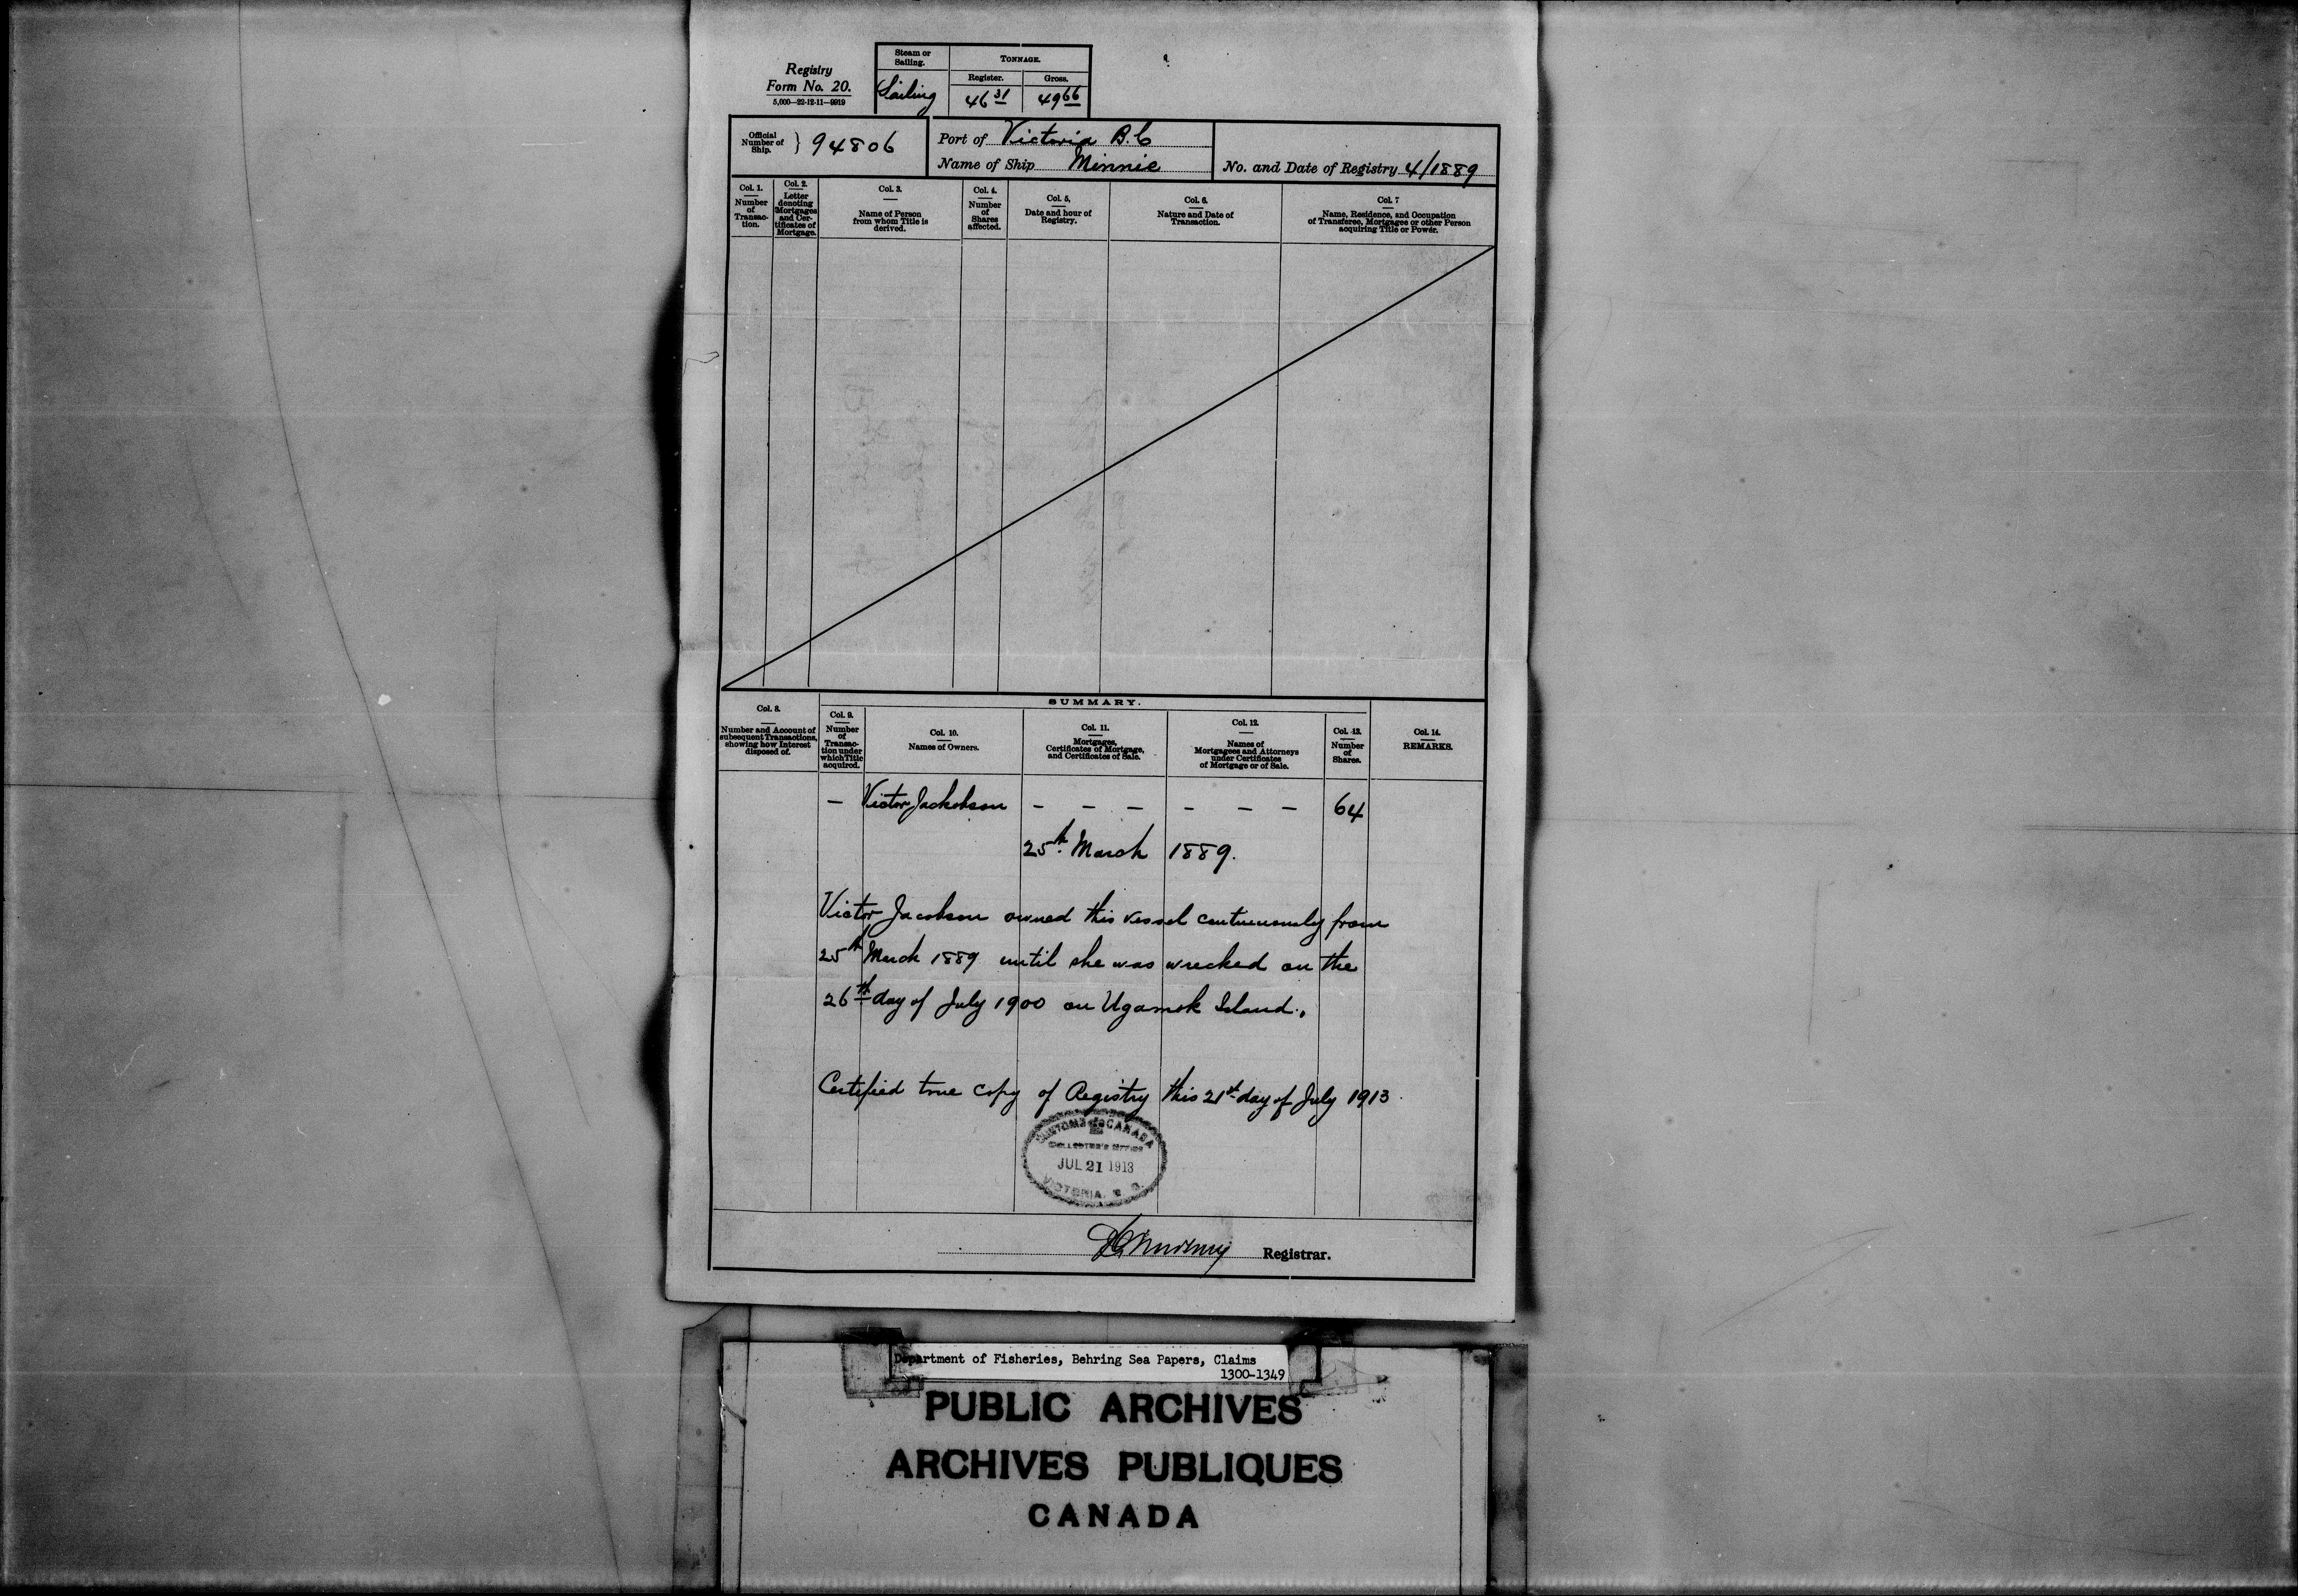 Registry
Form No. 20.
5,000—22-12-11—9919
Steam or
Sailing.
TONNAGE.
Register.
Gross.
Sailing
46 31
49 66
Official
Number of
Ship.
94806
Port of Victoria B.C
Name of Ship Minnie
No. and Date of Registry 4/1889
Col. 1.
Number
of
Transac-
tion.
Col. 2.
Letter
denoting
Mortgages
and Cer-
tificates of
Mortgage.
Col. 3.
Name of Person
from whom Title is
derived.
Col. 4.
Number
of
Shares
affected.
Col. 5.
Date and hour of
Registry.
Col. 6.
Nature and Date of
Transaction.
Col. 7
Name, Residence, and Occupation
of Transferee, Mortgagee or other Person
acquiring Title or Power.
SUMMARY.
Col. 8.
Number and Account of
subsequent Transactions,
showing how Interest
disposed of.
Col. 9.
Number
of
Transac-
tion under
which Title
acquired.
Col. 10.
Names of Owners.
Col. 11.
Mortgages,
Certificates of Mortgage,
and Certificates of Sale.
Col. 12.
Names of
Mortgagees and Attorneys
under Certificates
of Mortgage or of Sale.
Col. 13.
Number
of
Shares.
Col. 14.
REMARKS.
— Victor Jackobson — — — — — — 64
25th March 1889.
Victor Jacobson owned this vessel continuously from
25th March 1889 until she was wrecked on the
26th day of July 1900 on Ugamok Island.
Certified true copy of Registry this 21st day of July 1913.
CUSTOMS CANADA
COLLECTOR'S OFFICE
JUL 21 1913
VICTORIA, B. C.
Registrar.
Department of Fisheries, Behring Sea Papers, Claims
1300-1349
PUBLIC ARCHIVES
ARCHIVES PUBLIQUES
CANADA